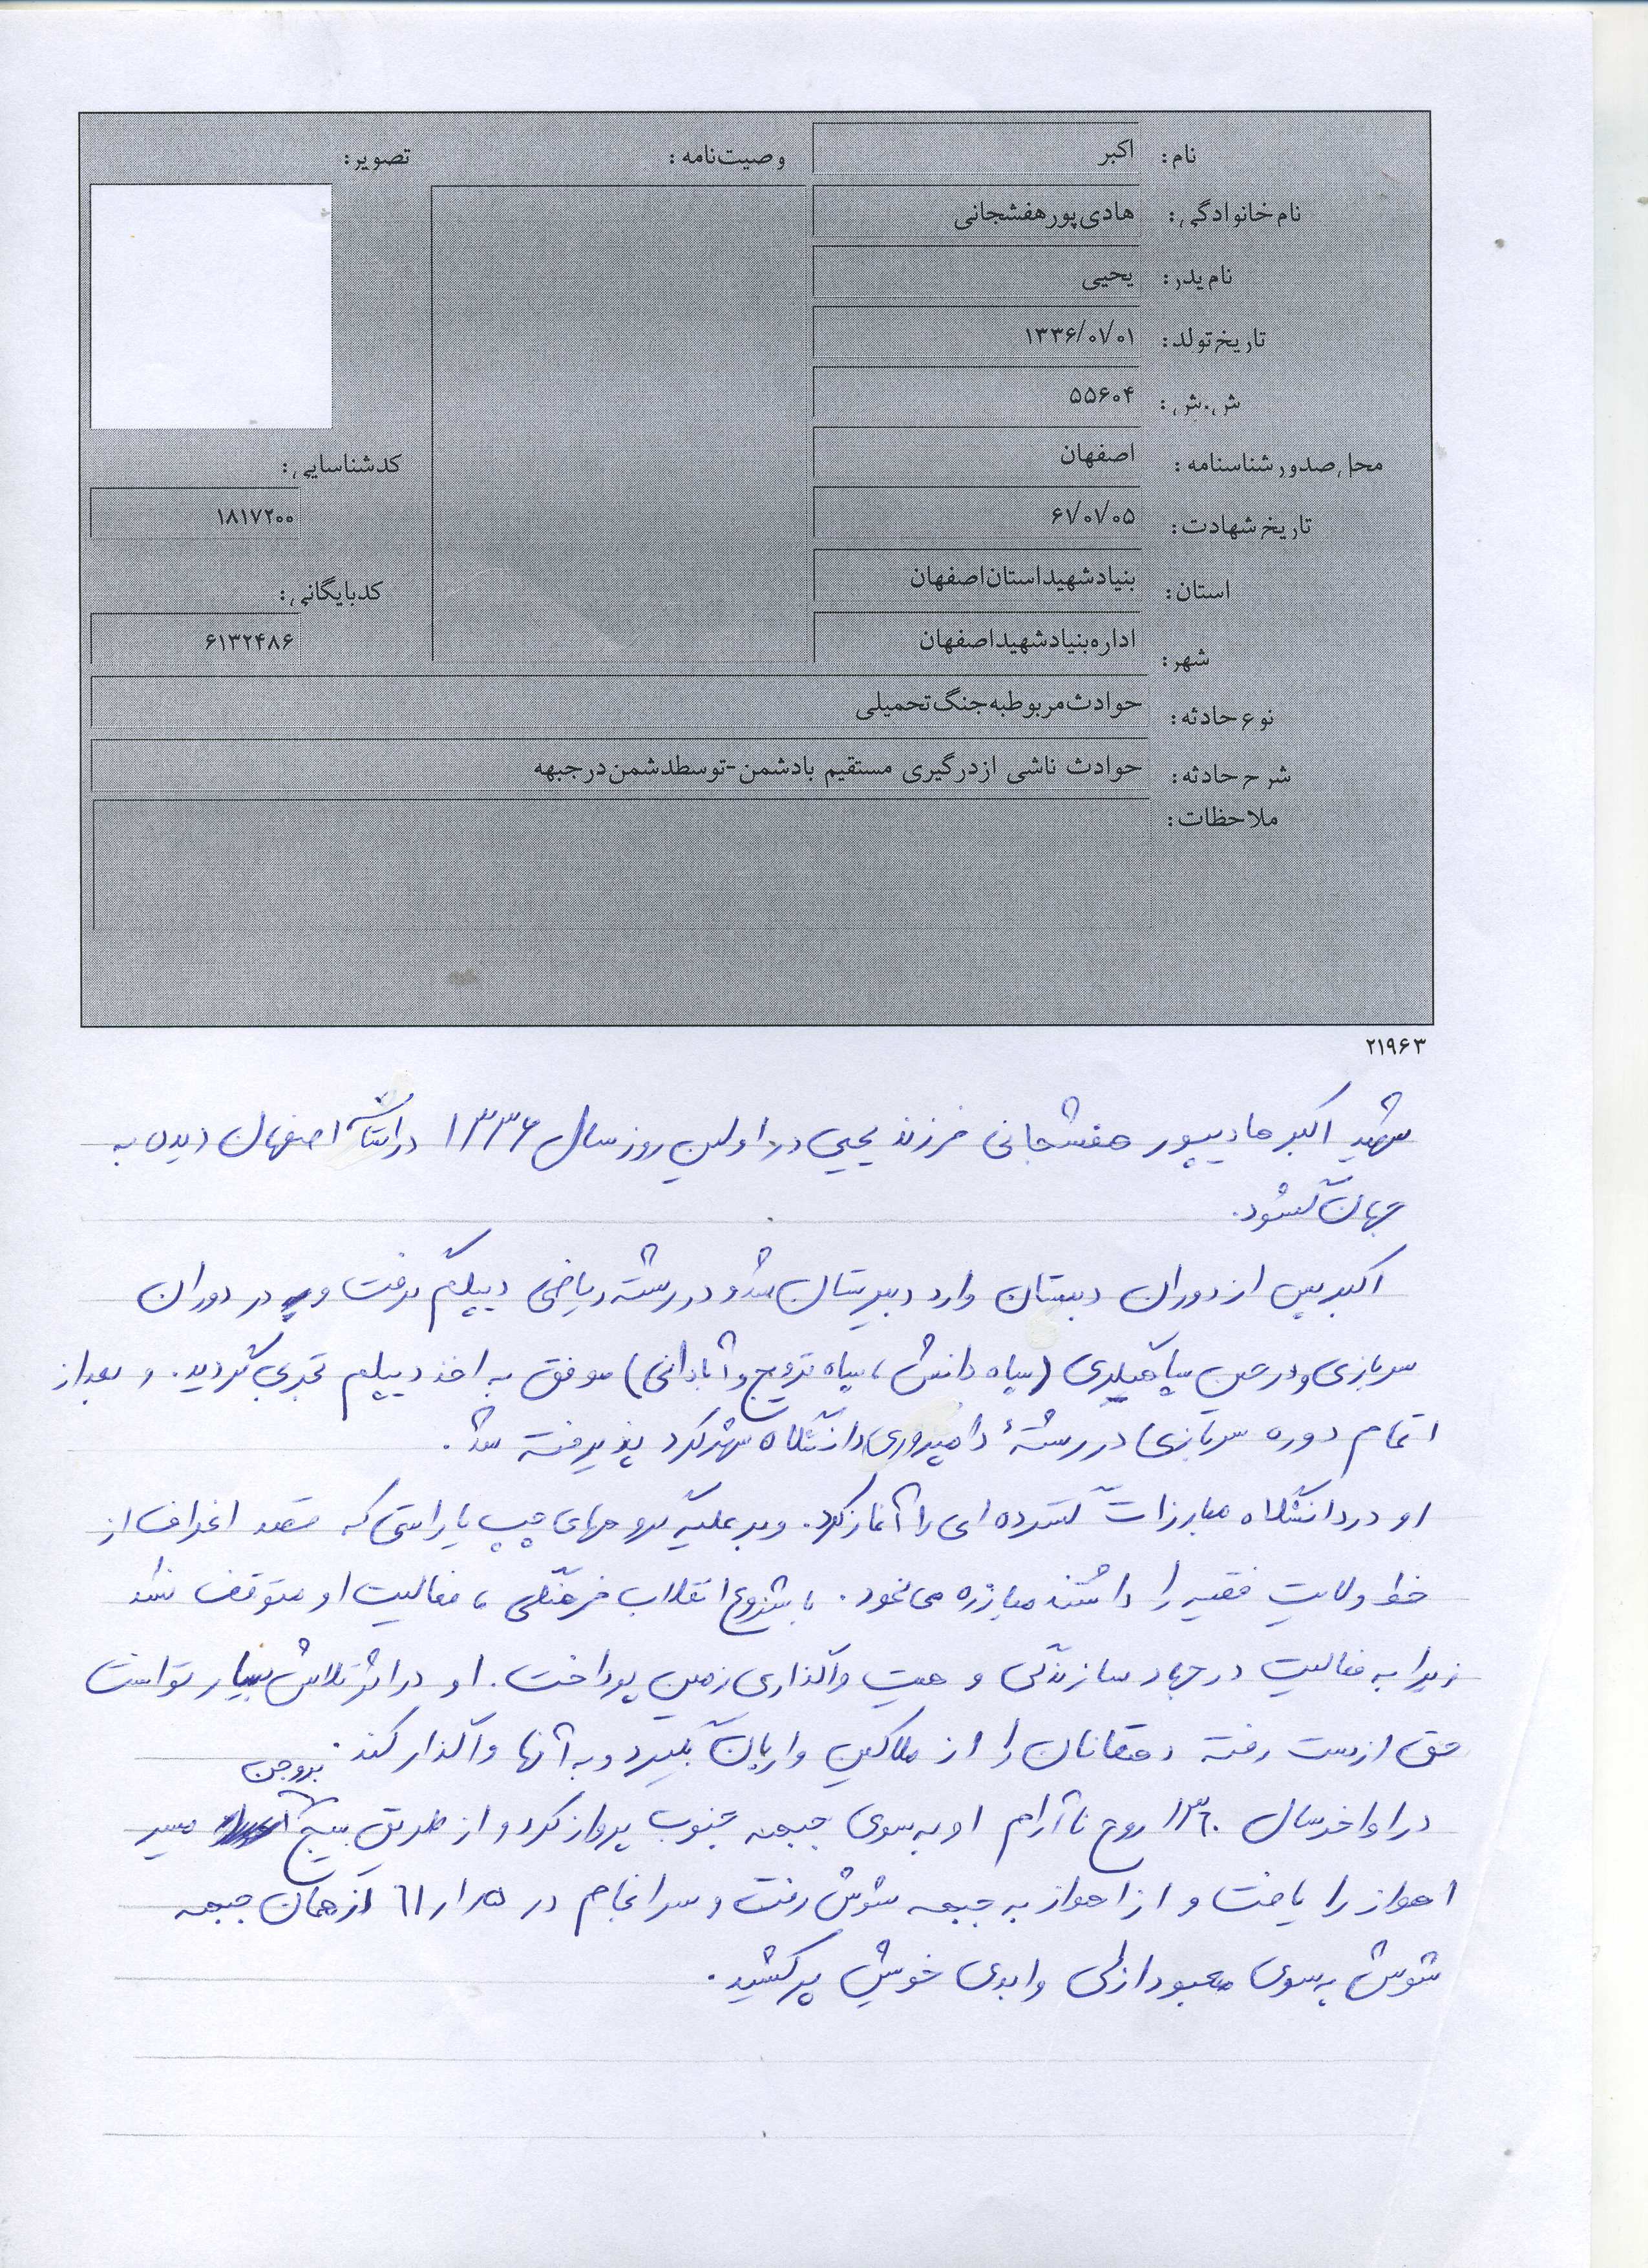 نام: اکبر
نام خانوادگی: هادی‌پور هفشجانی
نام پدر: یحیی
تاریخ تولد: ۱۳۳۶/۰۱/۰۱
ش.ش: ۵۵۶۰۴
محل صدور شناسنامه: اصفهان
تاریخ شهادت: ۶۱/۰۱/۰۵
استان: بنیاد شهید استان اصفهان
شهر: اداره بنیاد شهید اصفهان
وصیت‌نامه:
تصویر:
کد شناسایی:
۱۸۱۷۲۰۰
کد بایگانی:
۶۱۳۲۴۸۶
نوع حادثه: حوادث مربوط به جنگ تحمیلی
شرح حادثه: حوادث ناشی از درگیری مستقیم با دشمن-توسط دشمن در جبهه
ملاحظات:
۲۱۹۶۳
شهید اکبر هادیپور هفشجانی فرزند یحیی در اولین روز سال ۱۳۳۶ در استان اصفهان دیده به
جهان گشود.
اکبر پس از دوران دبستان وارد دبیرستان شد و در رشته ریاضی دیپلم گرفت و در دوران
سربازی و در حین سپاهیگری (سپاه دانش، سپاه ترویج و آبادانی) موفق به اخذ دیپلم تجربی گردید. و بعد از
اتمام دوره سربازی در رشتهٔ دامپروری دانشگاه شهرکرد پذیرفته شد.
او در دانشگاه مبارزات گسترده ای را آغاز کرد. و بر علیه گروههای چپ یا راستی که قصد انحراف از
خط ولایت فقیه را داشتند مبارزه می نمود. با شروع انقلاب فرهنگی، فعالیت او متوقف نشد
زیرا به فعالیت در جهاد سازندگی و هیت واگذاری زمین پرداخت. او در اثر تلاش بسیار توانست
حق از دست رفته دهقانان را از مالکین و اربابان بگیرد و به آنها واگذار کند.
بروجن
در اواخر سال ۱۳۶۰ روح ناآرام او به سوی جبهه جنوب پرواز کرد و از طریق بسیج مسیر
اهواز را یافت و از اهواز به جبهه شوش رفت و سرانجام در ۵ر۱ر۶۱ از همان جبهه
شوش به سوی معبود ازلی و ابدی خویش پر کشید.